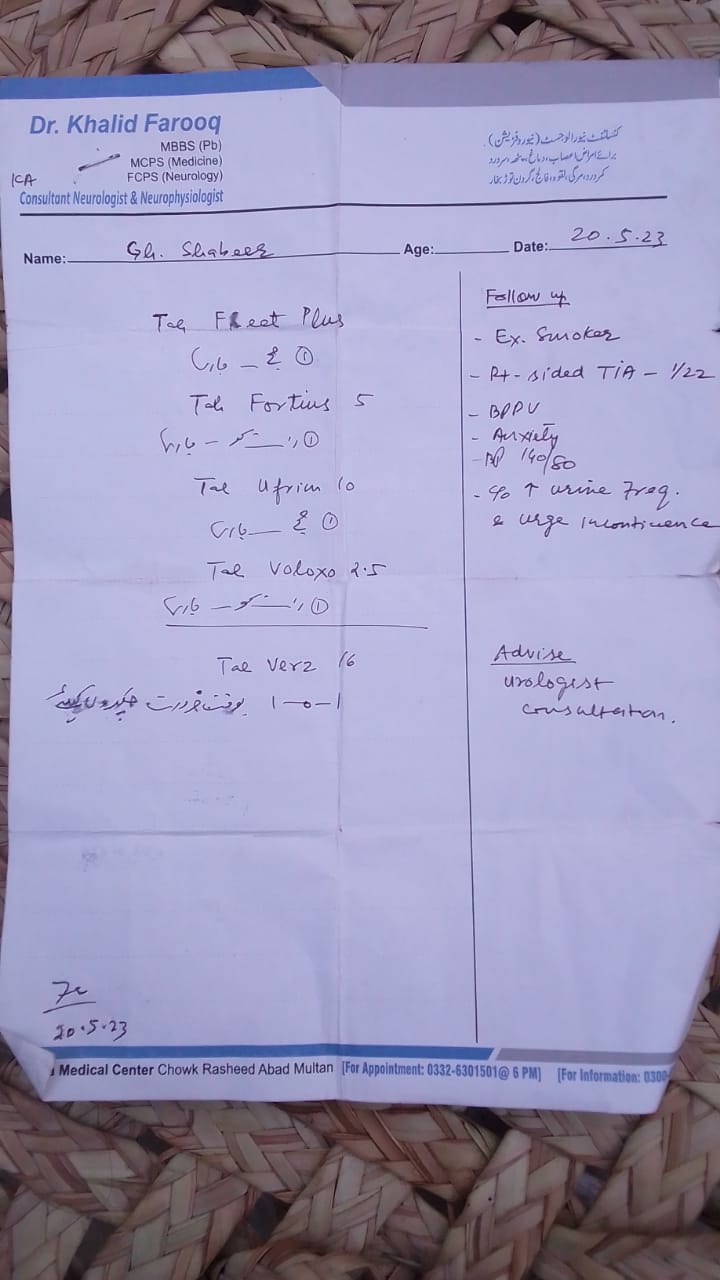 Dr. Khalid Farooq
MBBS (Pb)
MCPS (Medicine)
FCPS (Neurology)
Consultant Neurologist & Neurophysiologist
کنسلٹنٹ نیورالوجسٹ (نیوروفزیشن)
Name: Gh. Shabeer Age: Date: 20.5.23
Tab Fleet Plus
① صبح
Tab Fortius 5
① رات کو
Tab Ufrim 10
① صبح
Tab Voloxo 2.5
① رات کو
Tab Verz 16
1-0-1 بوقت ضرورت
Follow up
- Ex. Smoker
- Rt-sided TIA - 1/22
- BPPV
- Anxiety
- BP 140/80
- c/o ↑ urine Freq.
& urge incontinence
Advise
urologist
consultation.
20.5.23
Medical Center Chowk Rasheed Abad Multan [For Appointment: 0332-6301501@ 6 PM] [For Information: 0300-